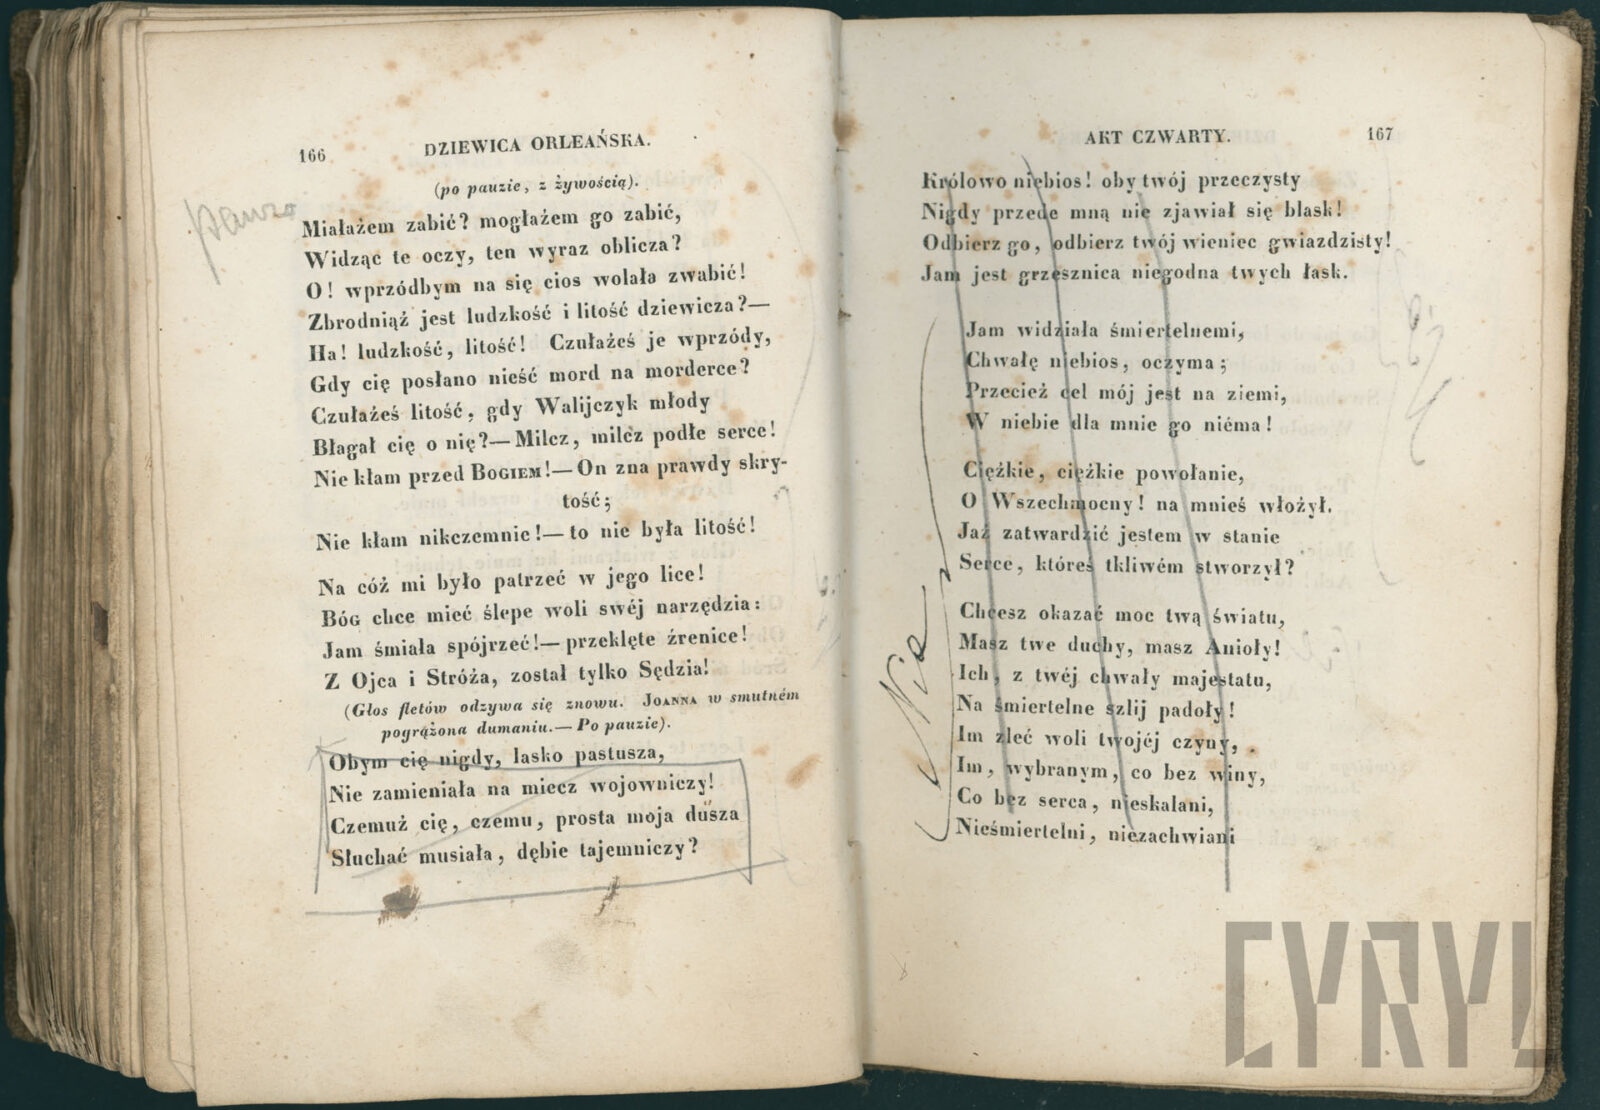 166
DZIEWICA ORLEAŃSKA.
(po pauzie, z żywością).
pauza
Miałażem zabić? mogłażem go zabić,
Widząc te oczy, ten wyraz oblicza?
O! wprzódbym na się cios wolała zwabić!
Zbrodniąż jest ludzkość i litość dziewicza?—
Ha! ludzkość, litość! Czułażeś je wprzódy,
Gdy cię posłano nieść mord na morderce?
Czułażeś litość, gdy Walijczyk młody
Błagał cię o nię?—Milcz, milcz podłe serce!
Nie kłam przed BOGIEM!—On zna prawdy skry-
tość;
Nie kłam nikczemnie!—to nie była litość!
Na cóż mi było patrzeć w jego lice!
BÓG chce mieć ślepe woli swéj narzędzia:
Jam śmiała spójrzeć!—przeklęte źrenice!
Z Ojca i Stróża, został tylko Sędzia!
(Głos fletów odzywa się znowu. JOANNA w smutném
pogrążona dumaniu.—Po pauzie).
Obym cię nigdy, lasko pastusza,
Nie zamieniała na miecz wojowniczy!
Czemuż cię, czemu, prosta moja dusza
Słuchać musiała, dębie tajemniczy?
AKT CZWARTY.
167
Królowo niebios! oby twój przeczysty
Nigdy przede mną nie zjawiał się blask!
Odbierz go, odbierz twój wieniec gwiazdzisty!
Jam jest grzesznica niegodna twych łask.
Jam widziała śmiertelnemi,
Chwałę niebios, oczyma;
Przecież cel mój jest na ziemi,
W niebie dla mnie go niéma!
Ciężkie, ciężkie powołanie,
O Wszechmocny! na mnieś włożył.
Jaż zatwardzić jestem w stanie
Serce, któreś tkliwém stworzył?
Nie
Chcesz okazać moc twą światu,
Masz twe duchy, masz Anioły!
Ich, z twéj chwały majestatu,
Na śmiertelne szlij padoły!
Im zleć woli twojéj czyny,
Im, wybranym, co bez winy,
Co bez serca, nieskalani,
Nieśmiertelni, niezachwiani
CYRYL